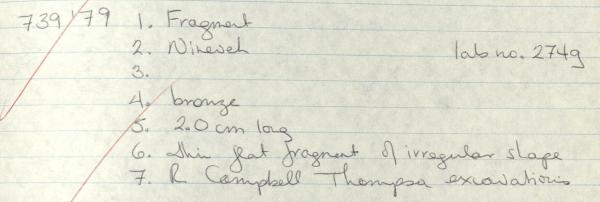 739 '79 1. Fragment
2. Nineveh lab no. 2749
3.
4. bronze
5. 2.0 cm long
6. thin flat fragment of irregular shape
7. R Campbell Thompson excavations